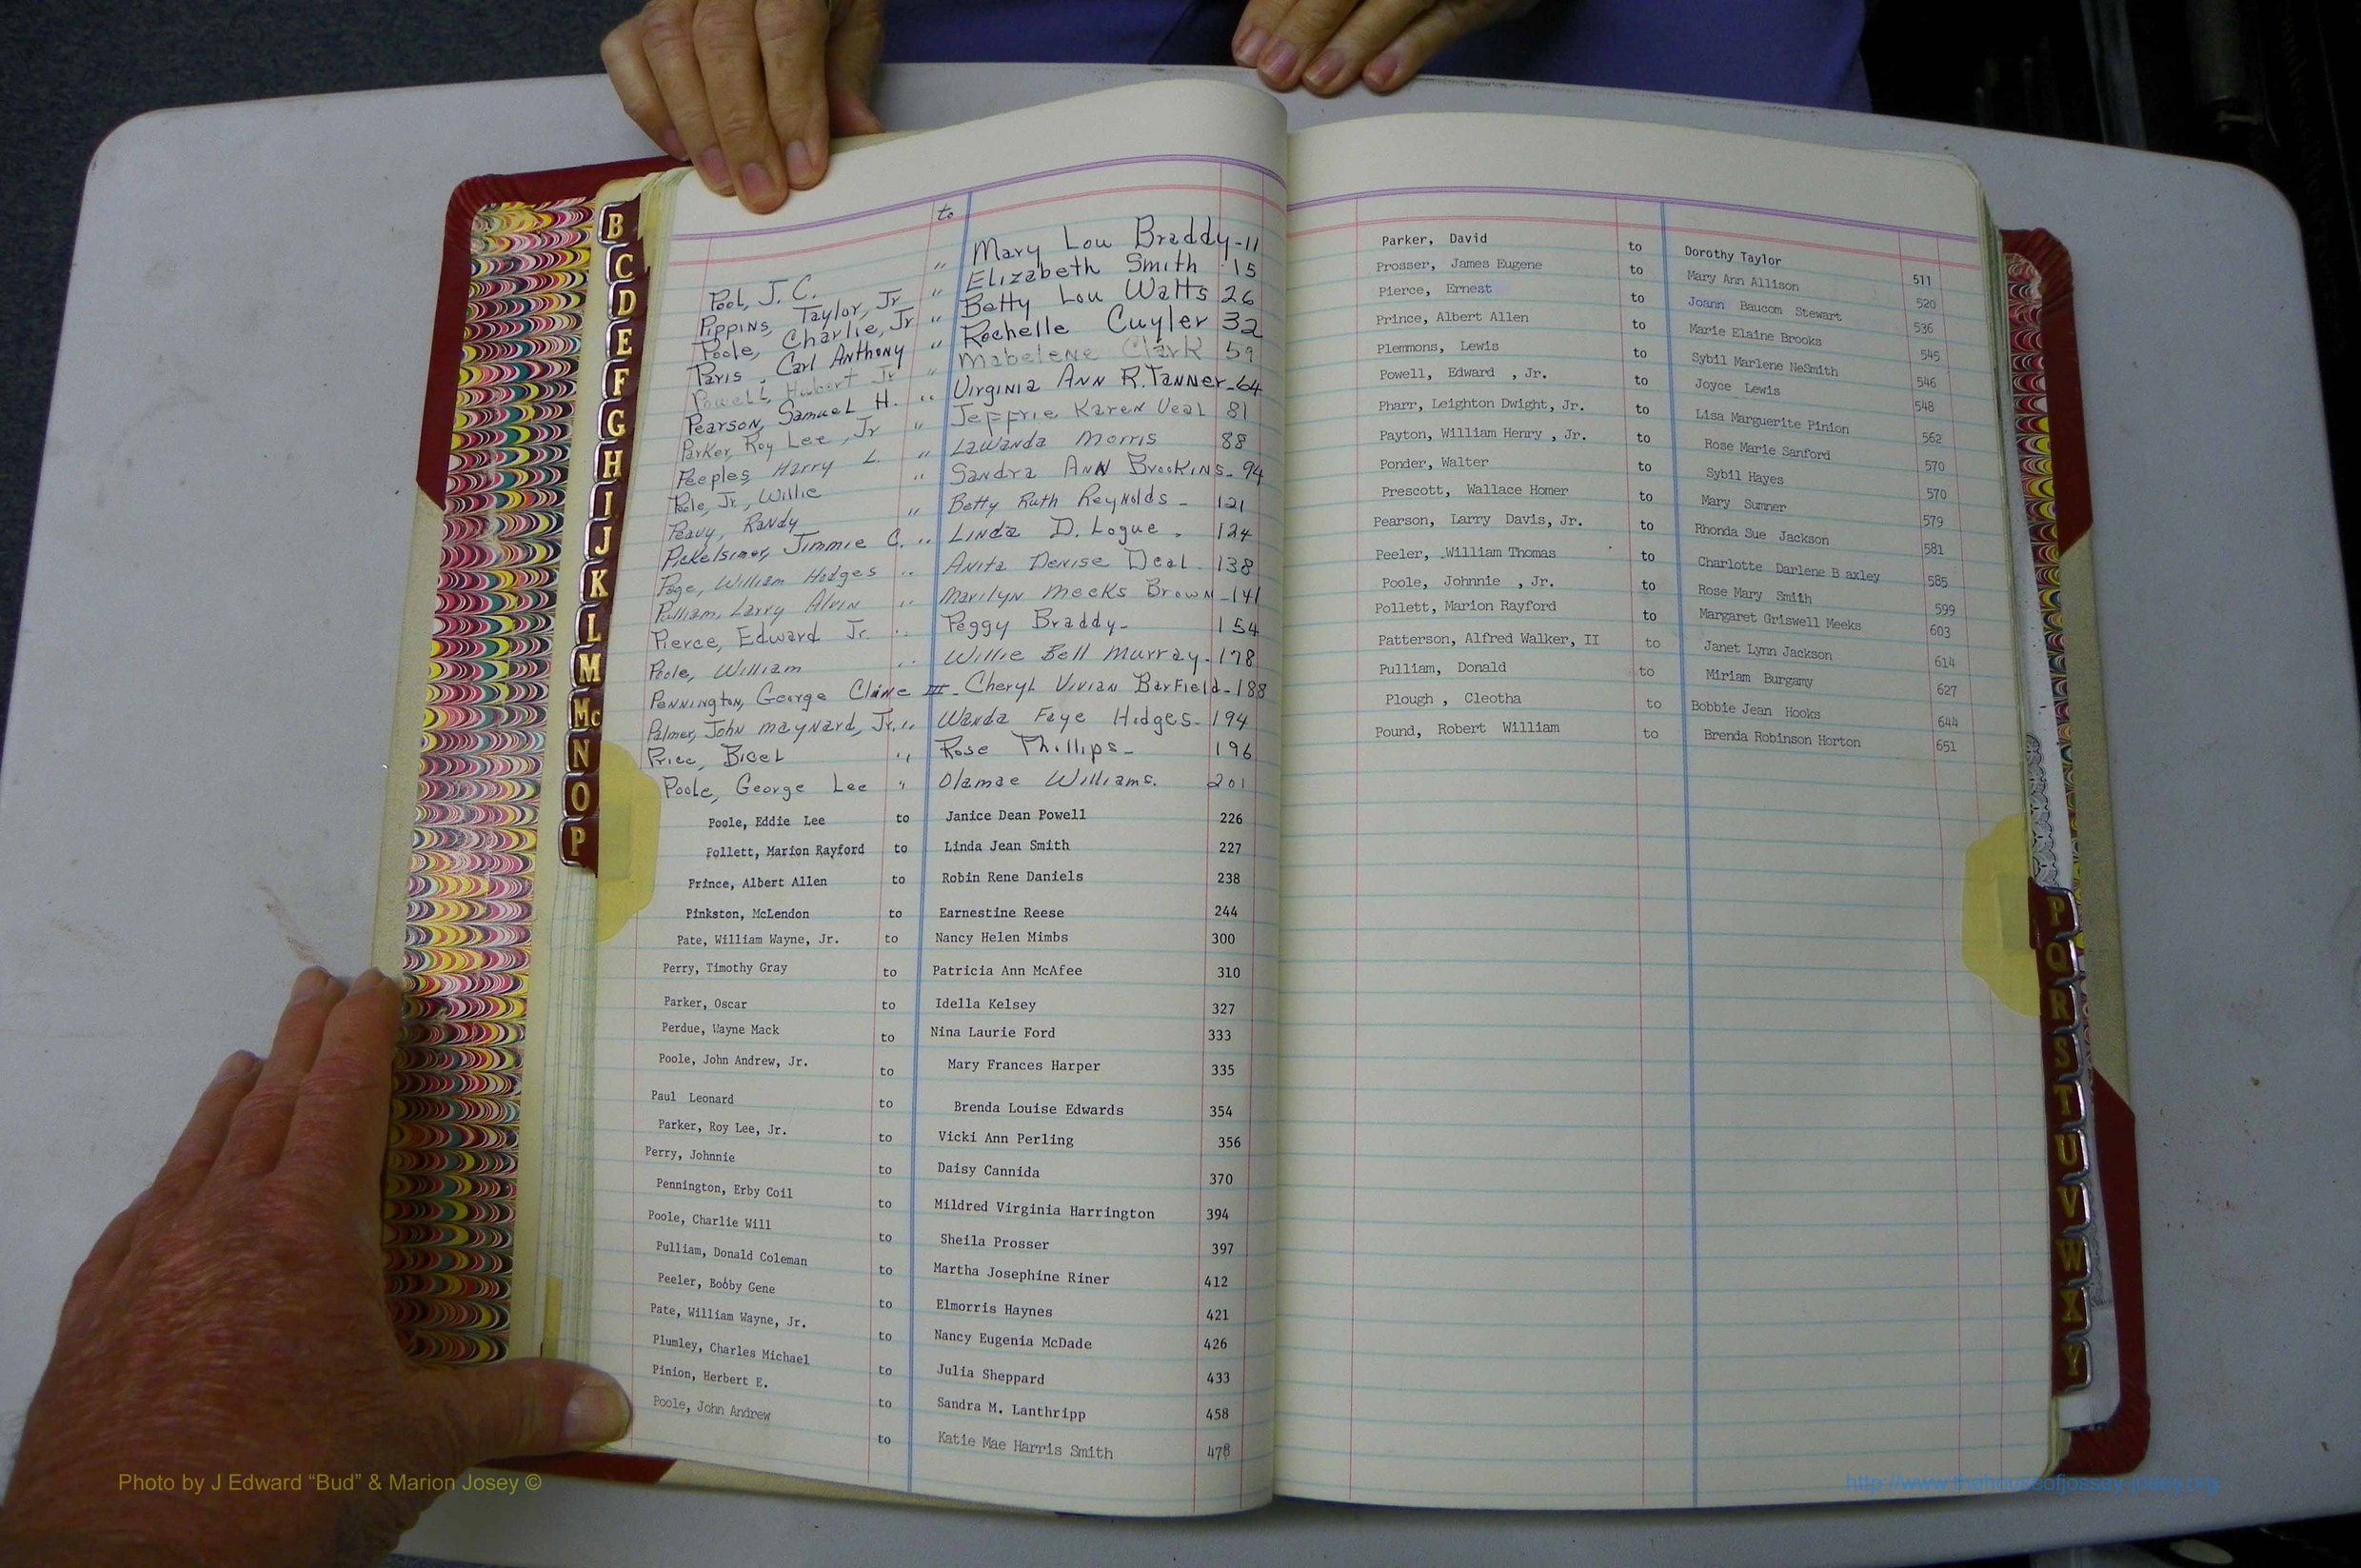 to
Pool, J. C. " Mary Lou Braddy-11
Pippins, Taylor, Jr " Elizabeth Smith 15
Poole, Charlie, Jr " Betty Lou Watts 26
Paris, Carl Anthony " Rochelle Cuyler 32
Powell, Hubert Jr " Mabelene Clark 59
Pearson, Samuel H. " Virginia Ann R. Tanner-64
Parker, Roy Lee, Jr " Jeffrie Karen Veal 81
Peeples, Harry L. " LaWanda Morris 88
Pole, Jr, Willie " Sandra Ann Brookins-94
Peavy, Randy " Betty Ruth Reynolds- 121
Pickelsimer, Jimmie C. " Linda D. Logue. 124
Page, William Hodges " Anita Denise Deal-138
Pulliam, Larry Alvin " Marilyn Meeks Brown-141
Pierce, Edward Jr. " Peggy Braddy- 154
Poole, William " Willie Bell Murray-178
Pennington, George Cline III-Cheryl Vivian Barfield-188
Palmer, John Maynard, Jr. " Wanda Faye Hodges-194
Price, Bicel " Rose Phillips- 196
Poole, George Lee " Olamae Williams. 201
Poole, Eddie Lee to Janice Dean Powell 226
Pollett, Marion Rayford to Linda Jean Smith 227
Prince, Albert Allen to Robin Rene Daniels 238
Pinkston, McLendon to Earnestine Reese 244
Pate, William Wayne, Jr. to Nancy Helen Mimbs 300
Perry, Timothy Gray to Patricia Ann McAfee 310
Parker, Oscar to Idella Kelsey 327
Perdue, Wayne Mack to Nina Laurie Ford 333
Poole, John Andrew, Jr. to Mary Frances Harper 335
Paul Leonard to Brenda Louise Edwards 354
Parker, Roy Lee, Jr. to Vicki Ann Perling 356
Perry, Johnnie to Daisy Cannida 370
Pennington, Erby Coil to Mildred Virginia Harrington 394
Poole, Charlie Will to Sheila Prosser 397
Pulliam, Donald Coleman to Martha Josephine Riner 412
Peeler, Bobby Gene to Elmorris Haynes 421
Pate, William Wayne, Jr. to Nancy Eugenia McDade 426
Plumley, Charles Michael to Julia Sheppard 433
Pinion, Herbert E. to Sandra M. Lanthripp 458
Poole, John Andrew to Katie Mae Harris Smith 478
Parker, David to Dorothy Taylor 511
Prosser, James Eugene to Mary Ann Allison 520
Pierce, Ernest to Joann Baucom Stewart 536
Prince, Albert Allen to Marie Elaine Brooks 545
Plemmons, Lewis to Sybil Marlene NeSmith 546
Powell, Edward , Jr. to Joyce Lewis 548
Pharr, Leighton Dwight, Jr. to Lisa Marguerite Pinion 562
Payton, William Henry , Jr. to Rose Marie Sanford 570
Ponder, Walter to Sybil Hayes 570
Prescott, Wallace Homer to Mary Sumner 579
Pearson, Larry Davis, Jr. to Rhonda Sue Jackson 581
Peeler, .William Thomas to Charlotte Darlene B axley 585
Poole, Johnnie , Jr. to Rose Mary Smith 599
Pollett, Marion Rayford to Margaret Griswell Meeks 603
Patterson, Alfred Walker, II to Janet Lynn Jackson 614
Pulliam, Donald to Miriam Burgamy 627
Plough , Cleotha to Bobbie Jean Hooks 644
Pound, Robert William to Brenda Robinson Horton 651
B
C
D
E
F
G
H
I
J
K
L
M
Mc
N
O
P
P
Q
R
S
T
U
V
W
X
Y
Photo by J Edward “Bud” & Marion Josey ©
http://www.thehouseofjossey-josey.org